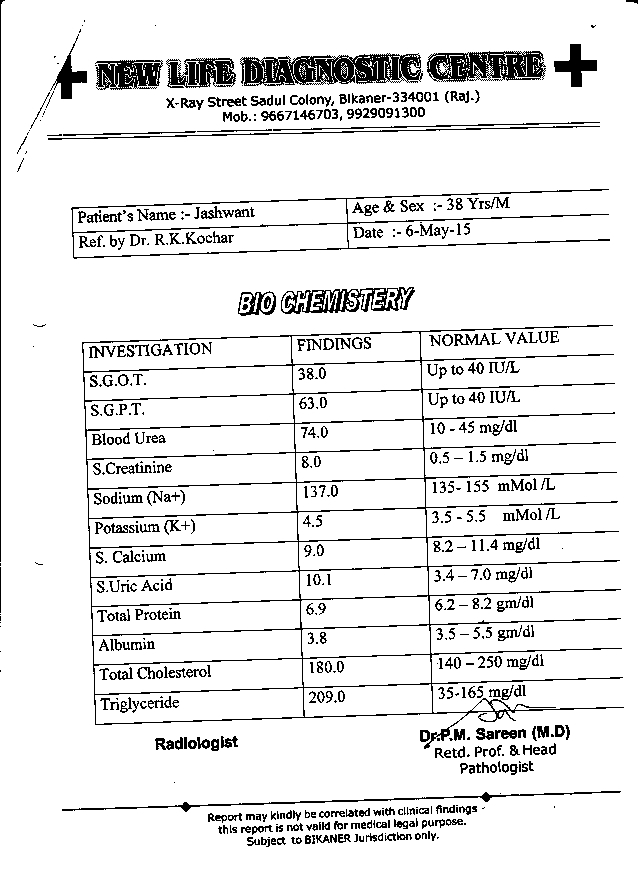 NEW LIFE DIAGNOSTIC CENTRE
X-Ray Street Sadul Colony, Bikaner-334001 (Raj.)
Mob.: 9667146703, 9929091300
Patient's Name :- Jashwant Age & Sex :- 38 Yrs/M
Ref. by Dr. R.K.Kochar Date :- 6-May-15
BIO CHEMISTERY
INVESTIGATION FINDINGS NORMAL VALUE
S.G.O.T. 38.0 Up to 40 IU/L
S.G.P.T. 63.0 Up to 40 IU/L
Blood Urea 74.0 10 - 45 mg/dl
S.Creatinine 8.0 0.5 – 1.5 mg/dl
Sodium (Na+) 137.0 135- 155 mMol /L
Potassium (K+) 4.5 3.5 - 5.5 mMol /L
S. Calcium 9.0 8.2 – 11.4 mg/dl
S.Uric Acid 10.1 3.4 – 7.0 mg/dl
Total Protein 6.9 6.2 – 8.2 gm/dl
Albumin 3.8 3.5 – 5.5 gm/dl
Total Cholesterol 180.0 140 – 250 mg/dl
Triglyceride 209.0 35-165 mg/dl
Radiologist Dr.P.M. Sareen (M.D)
Retd. Prof. & Head
Pathologist
Report may kindly be correlated with clinical findings -
this report is not valid for medical legal purpose.
Subject to BIKANER Jurisdiction only.